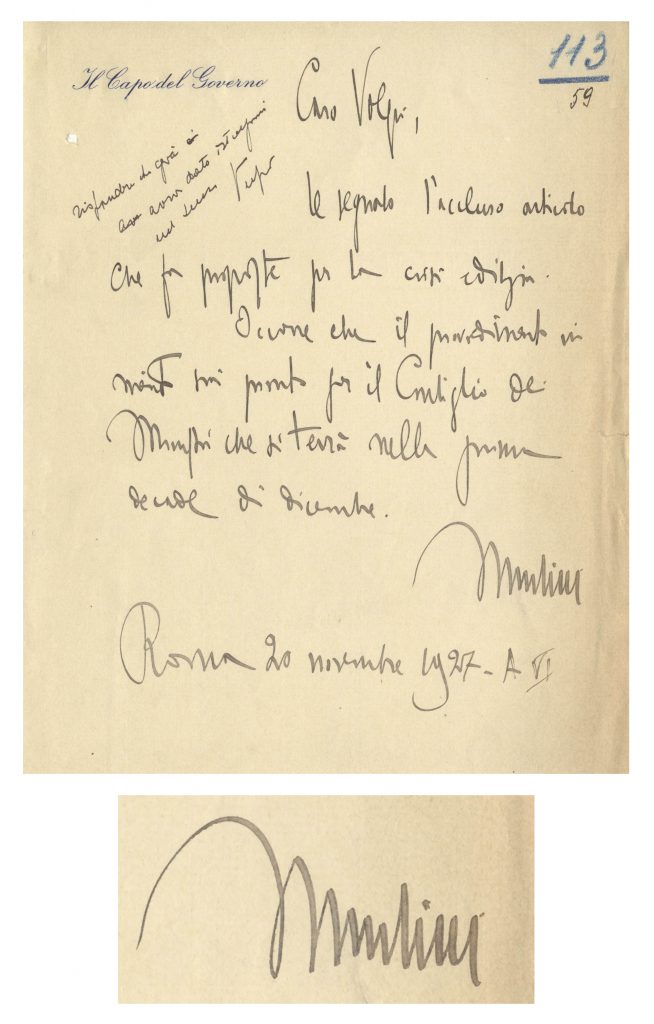 Il Capo del Governo
113
59
Caro Volpi,
rispondere che già si
sono avvi dato istruzioni
nel senso
le segnalo l'accluso articolo
che fa proposte per la crisi edilizia.
Occorre che il provvedimento in
merito sia pronto per il Consiglio dei
Ministri che si terrà nella prima
decade di dicembre.
Mussolini
Roma 20 novembre 1927 - A VI
Mussolini